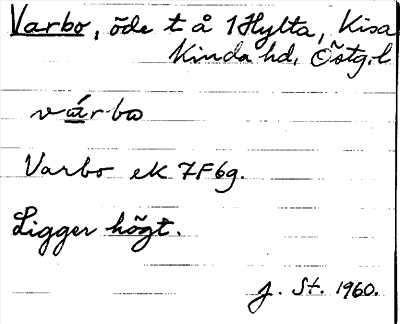 Varbo, öde t å 1 Hylta, Kisa
Kinda hd, Östg.l.
várbo
Varbo ek 7F6g.
Ligger högt.
J. St. 1960.